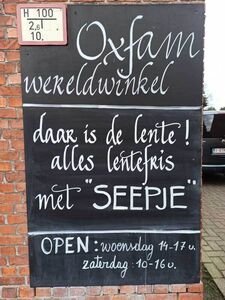 H 100
2,6
10,
Oxfam
wereldwinkel
daar is de lente!
alles lentefris
met "SEEPJE"
OPEN: woensdag 14-17 u.
zaterdag: 10-16 u.